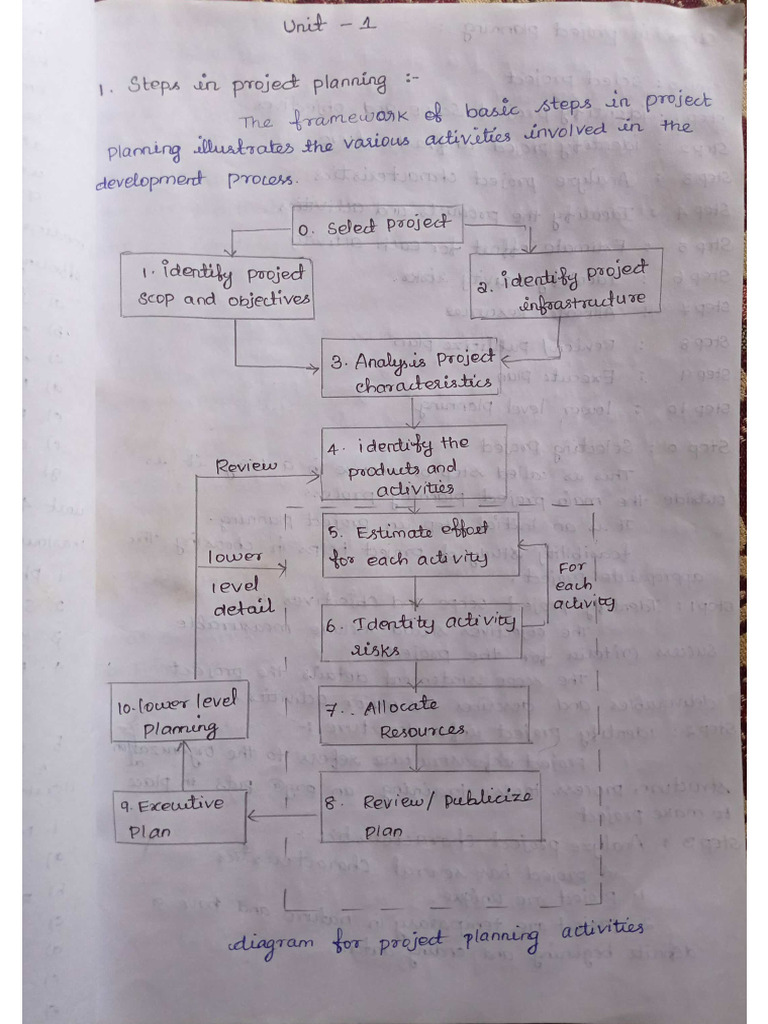 Unit - 1
1. Steps in project planning :-
The framework of basic steps in project
planning illustrates the various activities involved in the
development process.
0. Select project
1. identify project
scop and objectives
2. identify project
infrastructure
3. Analysis project
characteristics
4. identify the
products and
activities
Review
5. Estimate effort
for each activity
lower
level
detail
For
each
activity
6. Identity activity
risks
10. lower level
planning
7.. Allocate
Resources
9. Executive
plan
8. Review/ publicize
plan
diagram for project planning activities